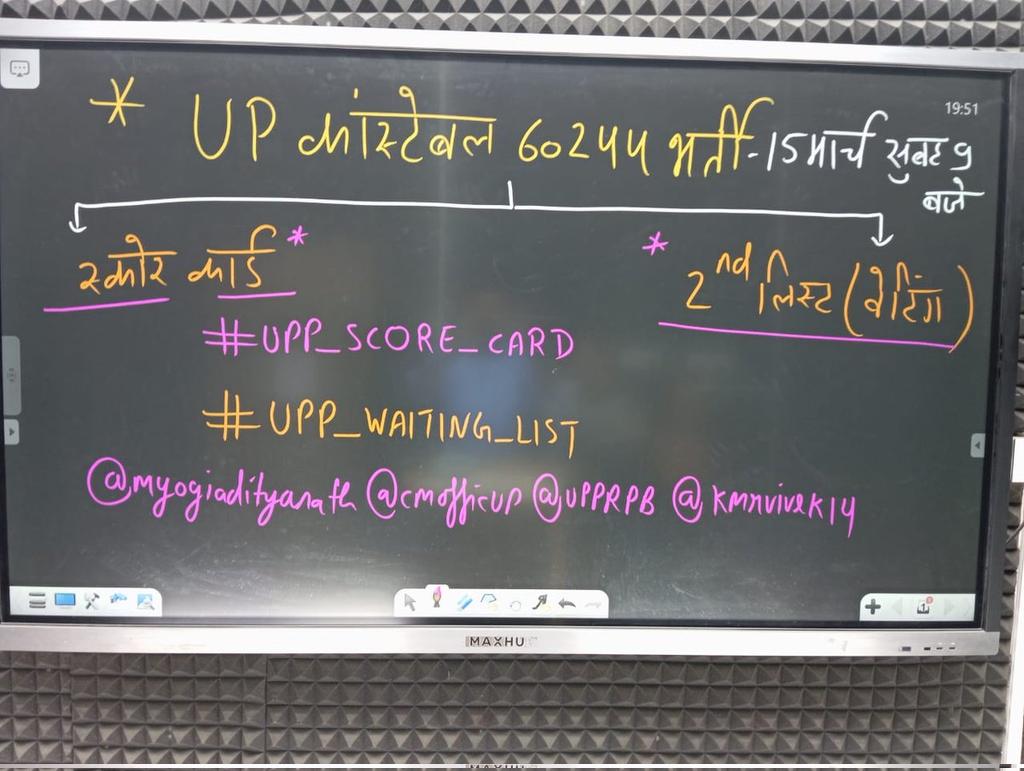 19:51
* UP कांस्टेबल 60244 भर्ती - 15 मार्च सुबह 9 बजे
स्कोर कार्ड *
* 2nd लिस्ट (वेटिंग)
#UPP_SCORE_CARD
#UPP_WAITING_LIST
@myogiadityanath @cmofficUP @UPPRPB @kmnvivek14
MAXHUB